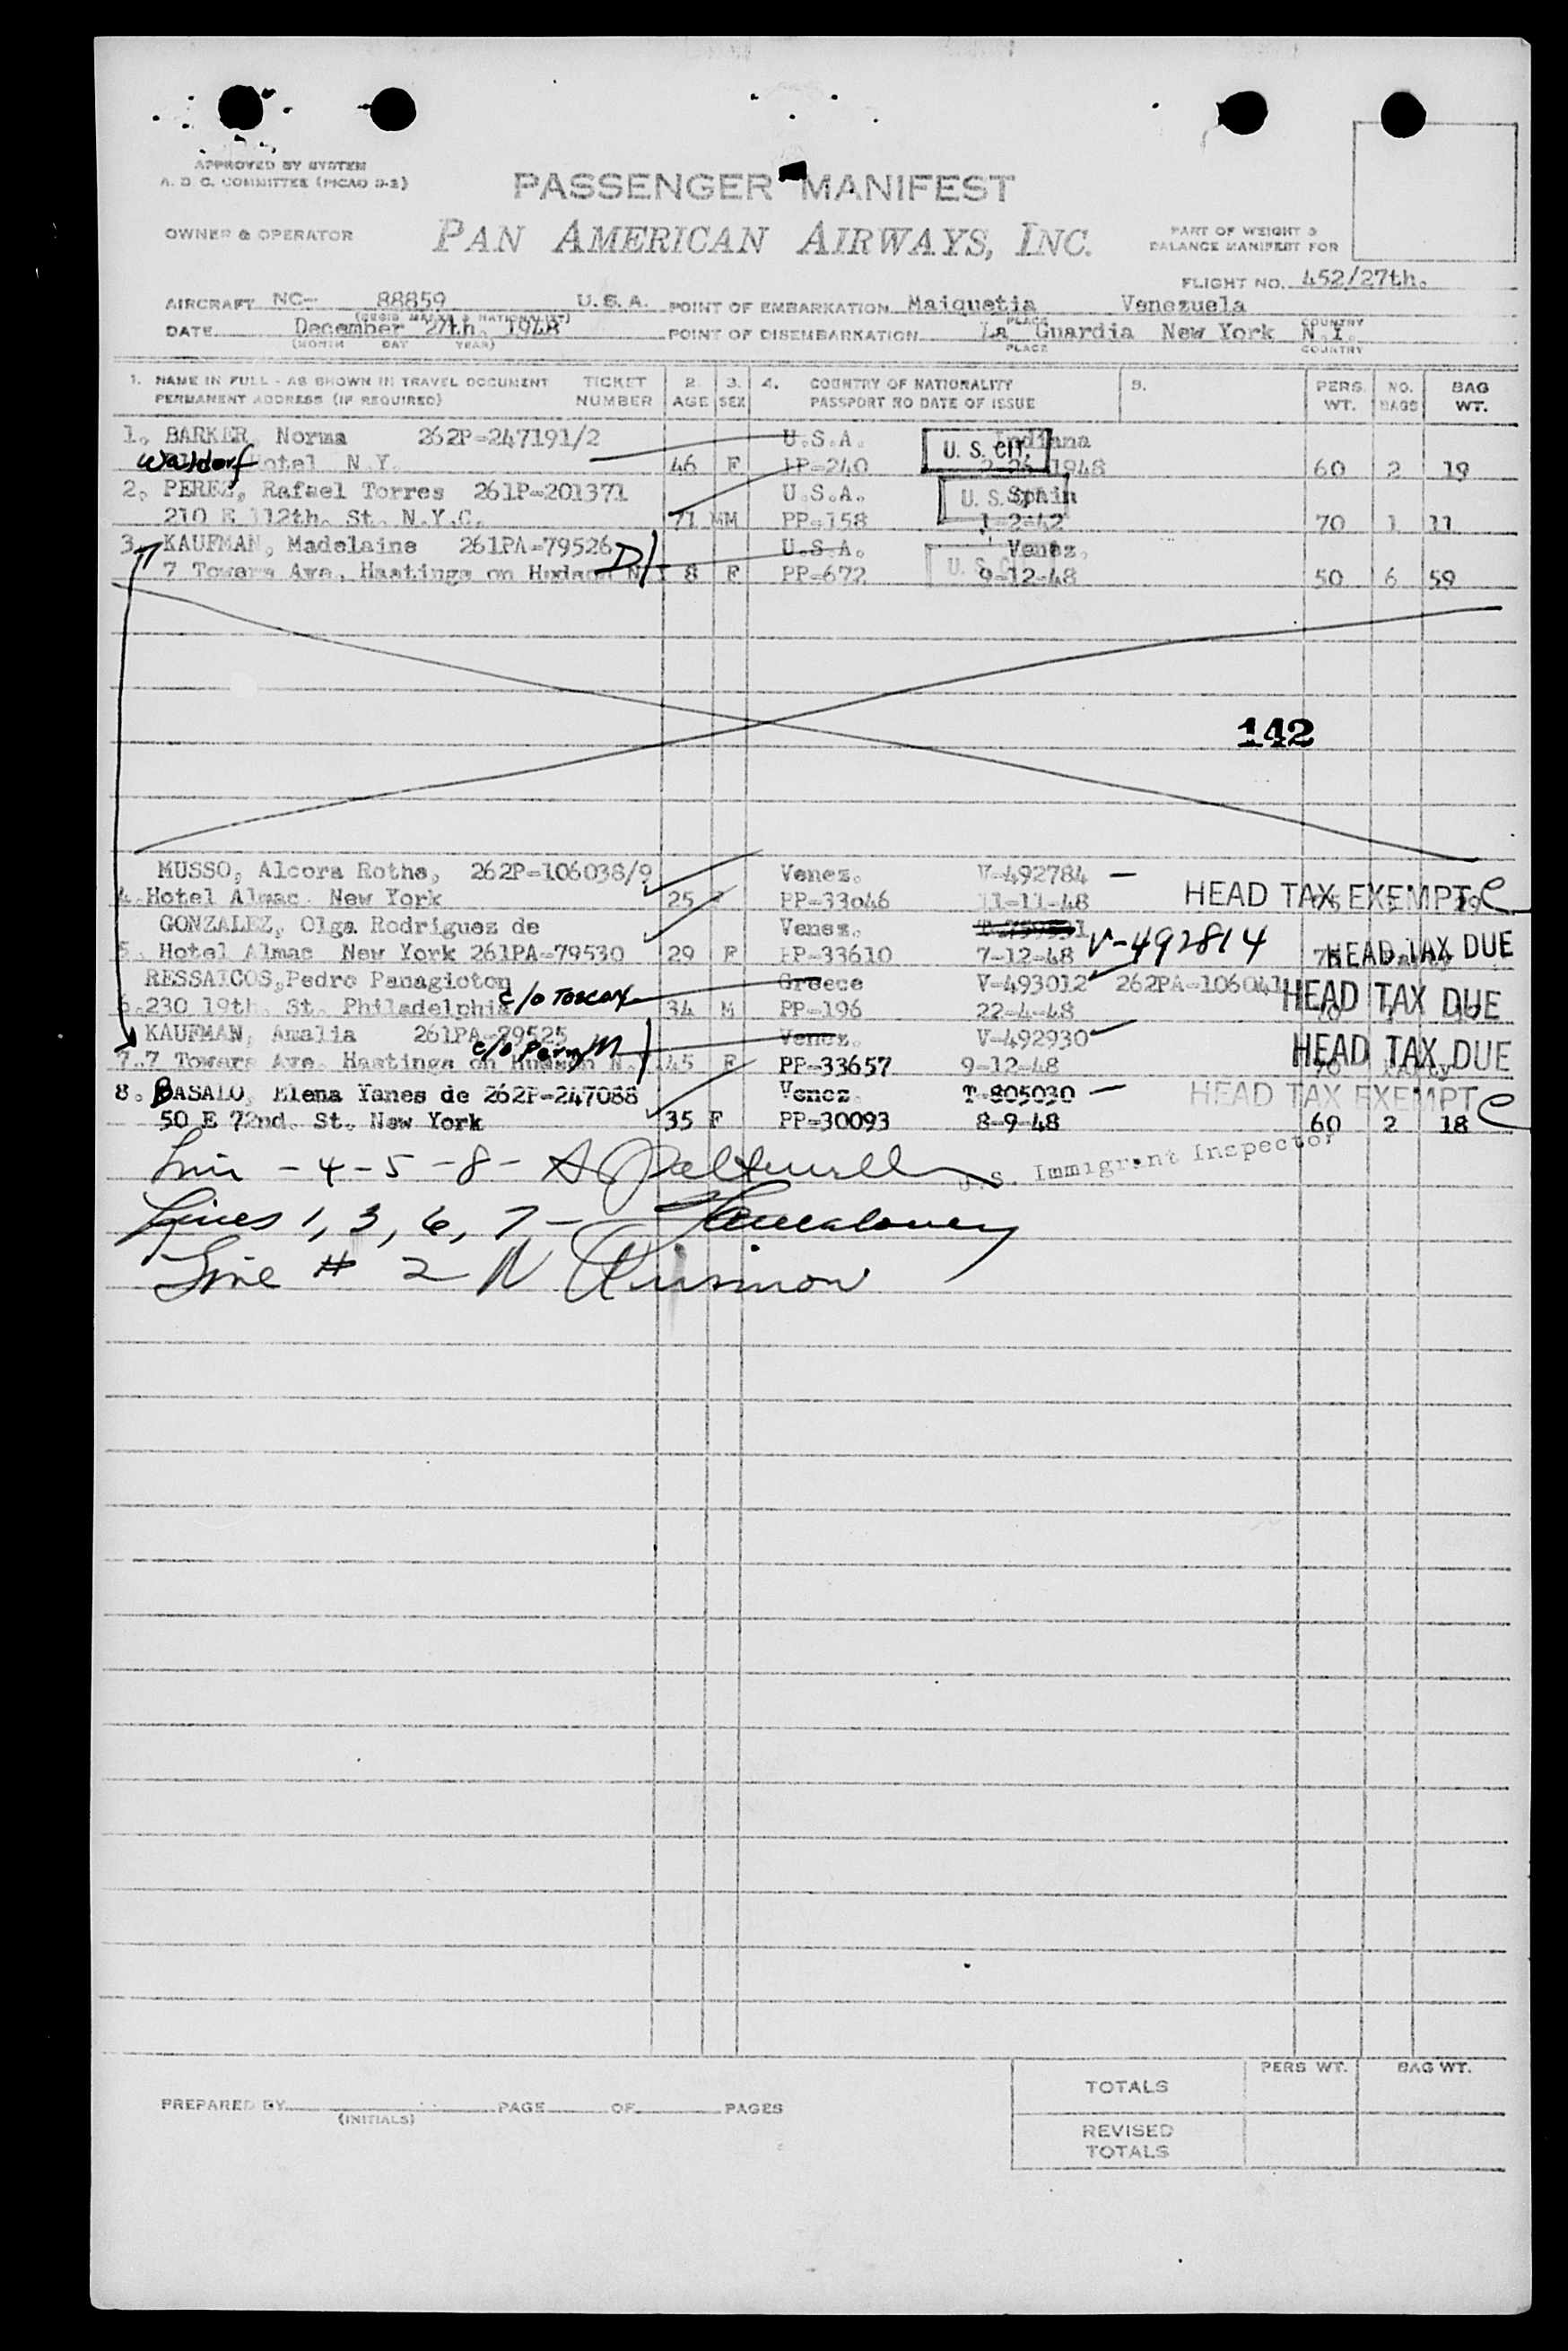 APPROVED BY SYSTEM
A. D. C. COMMITTEE (PICAO D-2)
PASSENGER MANIFEST
OWNER & OPERATOR PAN AMERICAN AIRWAYS, INC.
PART OF WEIGHT &
BALANCE MANIFEST FOR
FLIGHT NO. 452/27th.
AIRCRAFT NC- 88859 U.S.A. POINT OF EMBARKATION Maiquetia Venezuela
(REGIS MARKS & NATIONALITY) PLACE COUNTRY
DATE December 27th. 1948 POINT OF DISEMBARKATION La Guardia New York N.Y.
(MONTH DAY YEAR) PLACE COUNTRY
1. NAME IN FULL - AS SHOWN IN TRAVEL DOCUMENT TICKET 2. 3. 4. COUNTRY OF NATIONALITY 5. PERS. NO. BAG
PERMANENT ADDRESS (IF REQUIRED) NUMBER AGE SEX PASSPORT NO DATE OF ISSUE WT. BAGS WT.
1. BARKER, Norma 262P-247191/2 U.S.A. U. S. CIT. Indiana
Waldorf Hotel N.Y. 46 F PP-240 1948 60 2 19
2. PEREZ, Rafael Torres 261P-201371 U.S.A. U. S. Spain
210 E 112th. St. N.Y.C. 71 MM PP-158 1-2-42 70 1 11
3. KAUFMAN, Madelaine 261PA-79526 U.S.A. Venez.
7 Towars Ave. Hastings on Hudson 8 F PP-672 U. S. C 9-12-48 50 6 59
142
MUSSO, Alcora Rothe, 262P-106038/9 Venez. V-492784
4. Hotel Almac New York 25 PP-33046 11-11-48 HEAD TAX EXEMPT
GONZALEZ, Olga Rodriguez de Venez. V-492814
5. Hotel Almac New York 261PA-79530 29 F PP-33610 7-12-48 HEAD TAX DUE
RESSAICOS, Pedro Panagioton Greece V-493012 262PA-106041
6. 230 19th. St. Philadelphia c/o Toscony 34 M PP-196 22-4-48 HEAD TAX DUE
KAUFMAN, Amalia 261PA-79525 Venez. V-492930
7. 7 Towars Ave. Hastings on Hudson N. 45 F PP-33657 9-12-48 HEAD TAX DUE
8. BASALO, Elena Yanes de 262P-247088 Venez. T-805030 HEAD TAX EXEMPT
50 E 72nd. St. New York 35 F PP-30093 8-9-48 60 2 18
- 4 - 5 - 8 - U.S. Immigrant Inspector
Lines 1, 3, 6, 7 -
Line # 2 N
PREPARED BY (INITIALS) PAGE OF PAGES
PERS WT. BAG WT.
TOTALS
REVISED
TOTALS